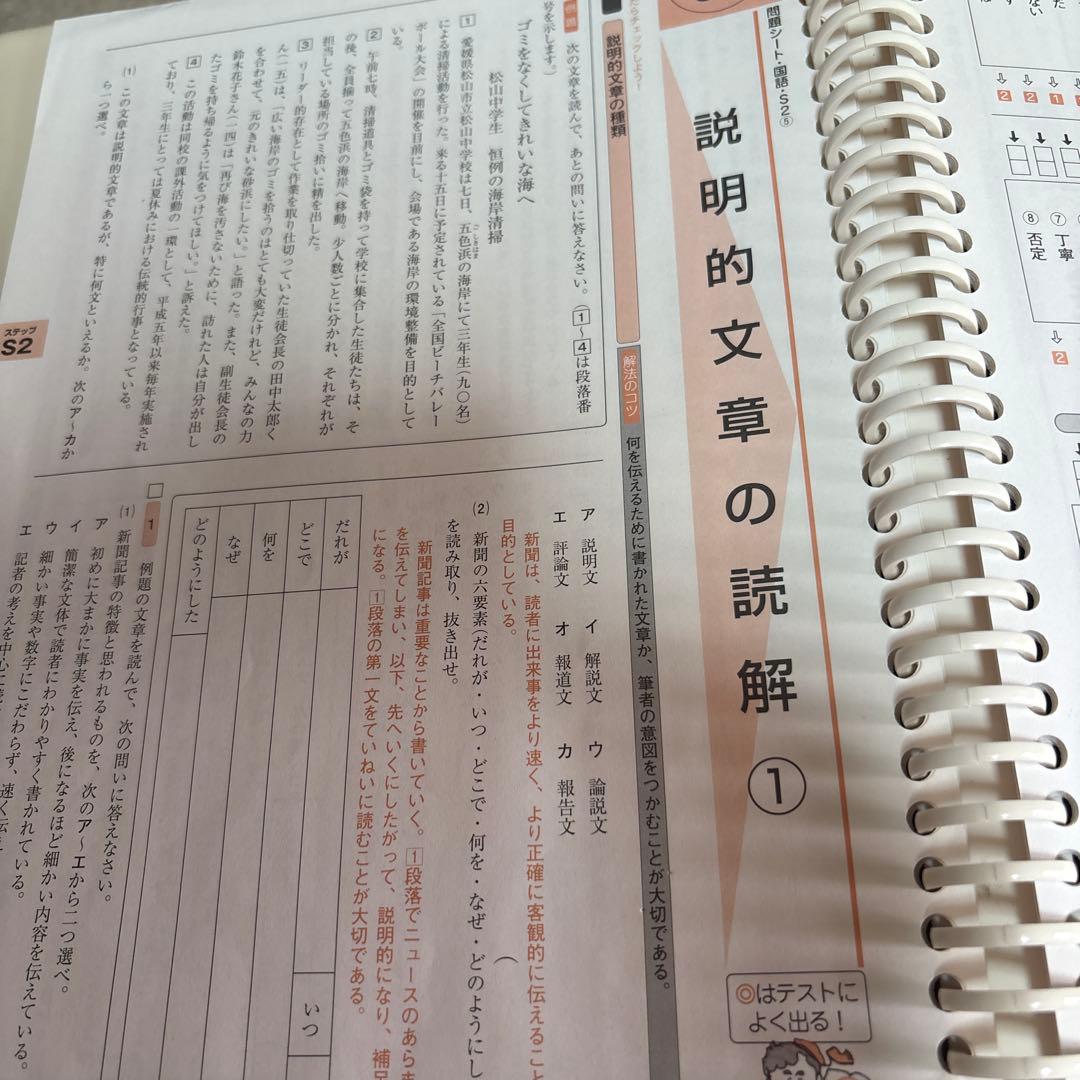 問題シート・国語・S2⑤
説明的文章の読解①
◎はテストに
よく出る！
たらチェックしよう！
説明的文章の種類
解法のコツ
何を伝えるために書かれた文章か、筆者の意図をつかむことが大切である。
例題
次の文章を読んで、あとの問いに答えなさい。（1～4は段落番
号を示します。）
ゴミをなくしてきれいな海へ
松山中学生　恒例の海岸清掃
1　愛媛県松山市立松山中学校は七日、五色浜の海岸にて三年生（九〇名）
による清掃活動を行った。来る十五日に予定されている「全国ビーチバレー
ボール大会」の開催を目前にし、会場である海岸の環境整備を目的として
いる。
2　午前七時、清掃道具とゴミ袋を持って学校に集合した生徒たちは、そ
の後、全員揃って五色浜の海岸へ移動。少人数ごとに分かれ、それぞれが
担当している場所のゴミ拾いに精を出した。
3　リーダー的存在として作業を取り仕切っていた生徒会長の田中太郎く
ん（一五）は、「広い海岸のゴミを拾うのはとても大変だけれど、みんなの力
を合わせて、元のきれいな砂浜にしたい。」と語った。また、副生徒会長の
鈴木花子さん（一四）は「再び海を汚さないために、訪れた人は自分が出し
たゴミを持ち帰るように気をつけてほしい。」と訴えた。
4　この活動は同校の課外活動の一環として、平成五年以来毎年実施され
ており、三年生にとっては夏休みにおける伝統的行事となっている。
(1)　この文章は説明的文章であるが、特に何文といえるか。次のア～カか
ら一つ選べ。
ステップ
S2
ア　説明文　イ　解説文　ウ　論説文
エ　評論文　オ　報道文　カ　報告文
新聞は、読者に出来事をより速く、より正確に客観的に伝えること
目的としている。
(2)　新聞の六要素（だれが・いつ・どこで・何を・なぜ・どのようにし
を読み取り、抜き出せ。
新聞記事は重要なことから書いていく。1段落でニュースのあらま
を伝えてしまい、以下、先へいくにしたがって、説明的になり、補足
になる。1段落の第一文をていねいに読むことが大切である。
だれが
いつ
どこで
何を
なぜ
どのようにした
1　例題の文章を読んで、次の問いに答えなさい。
(1)　新聞記事の特徴と思われるものを、次のア～エから二つ選べ。
ア　初めに大まかに事実を伝え、後になるほど細かい内容を伝えている。
イ　簡潔な文体で読者にわかりやすく書かれている。
ウ　細かい事実や数字にこだわらず、速く伝え
エ　記者の考えを中心に
⑦　丁寧
⑧　否定